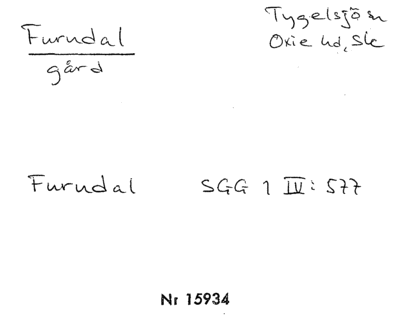 Furudal
gård
Tygelsjö sn
Oxie hd, Sk
Furudal SGG 1 IV: 577
Nr 15934